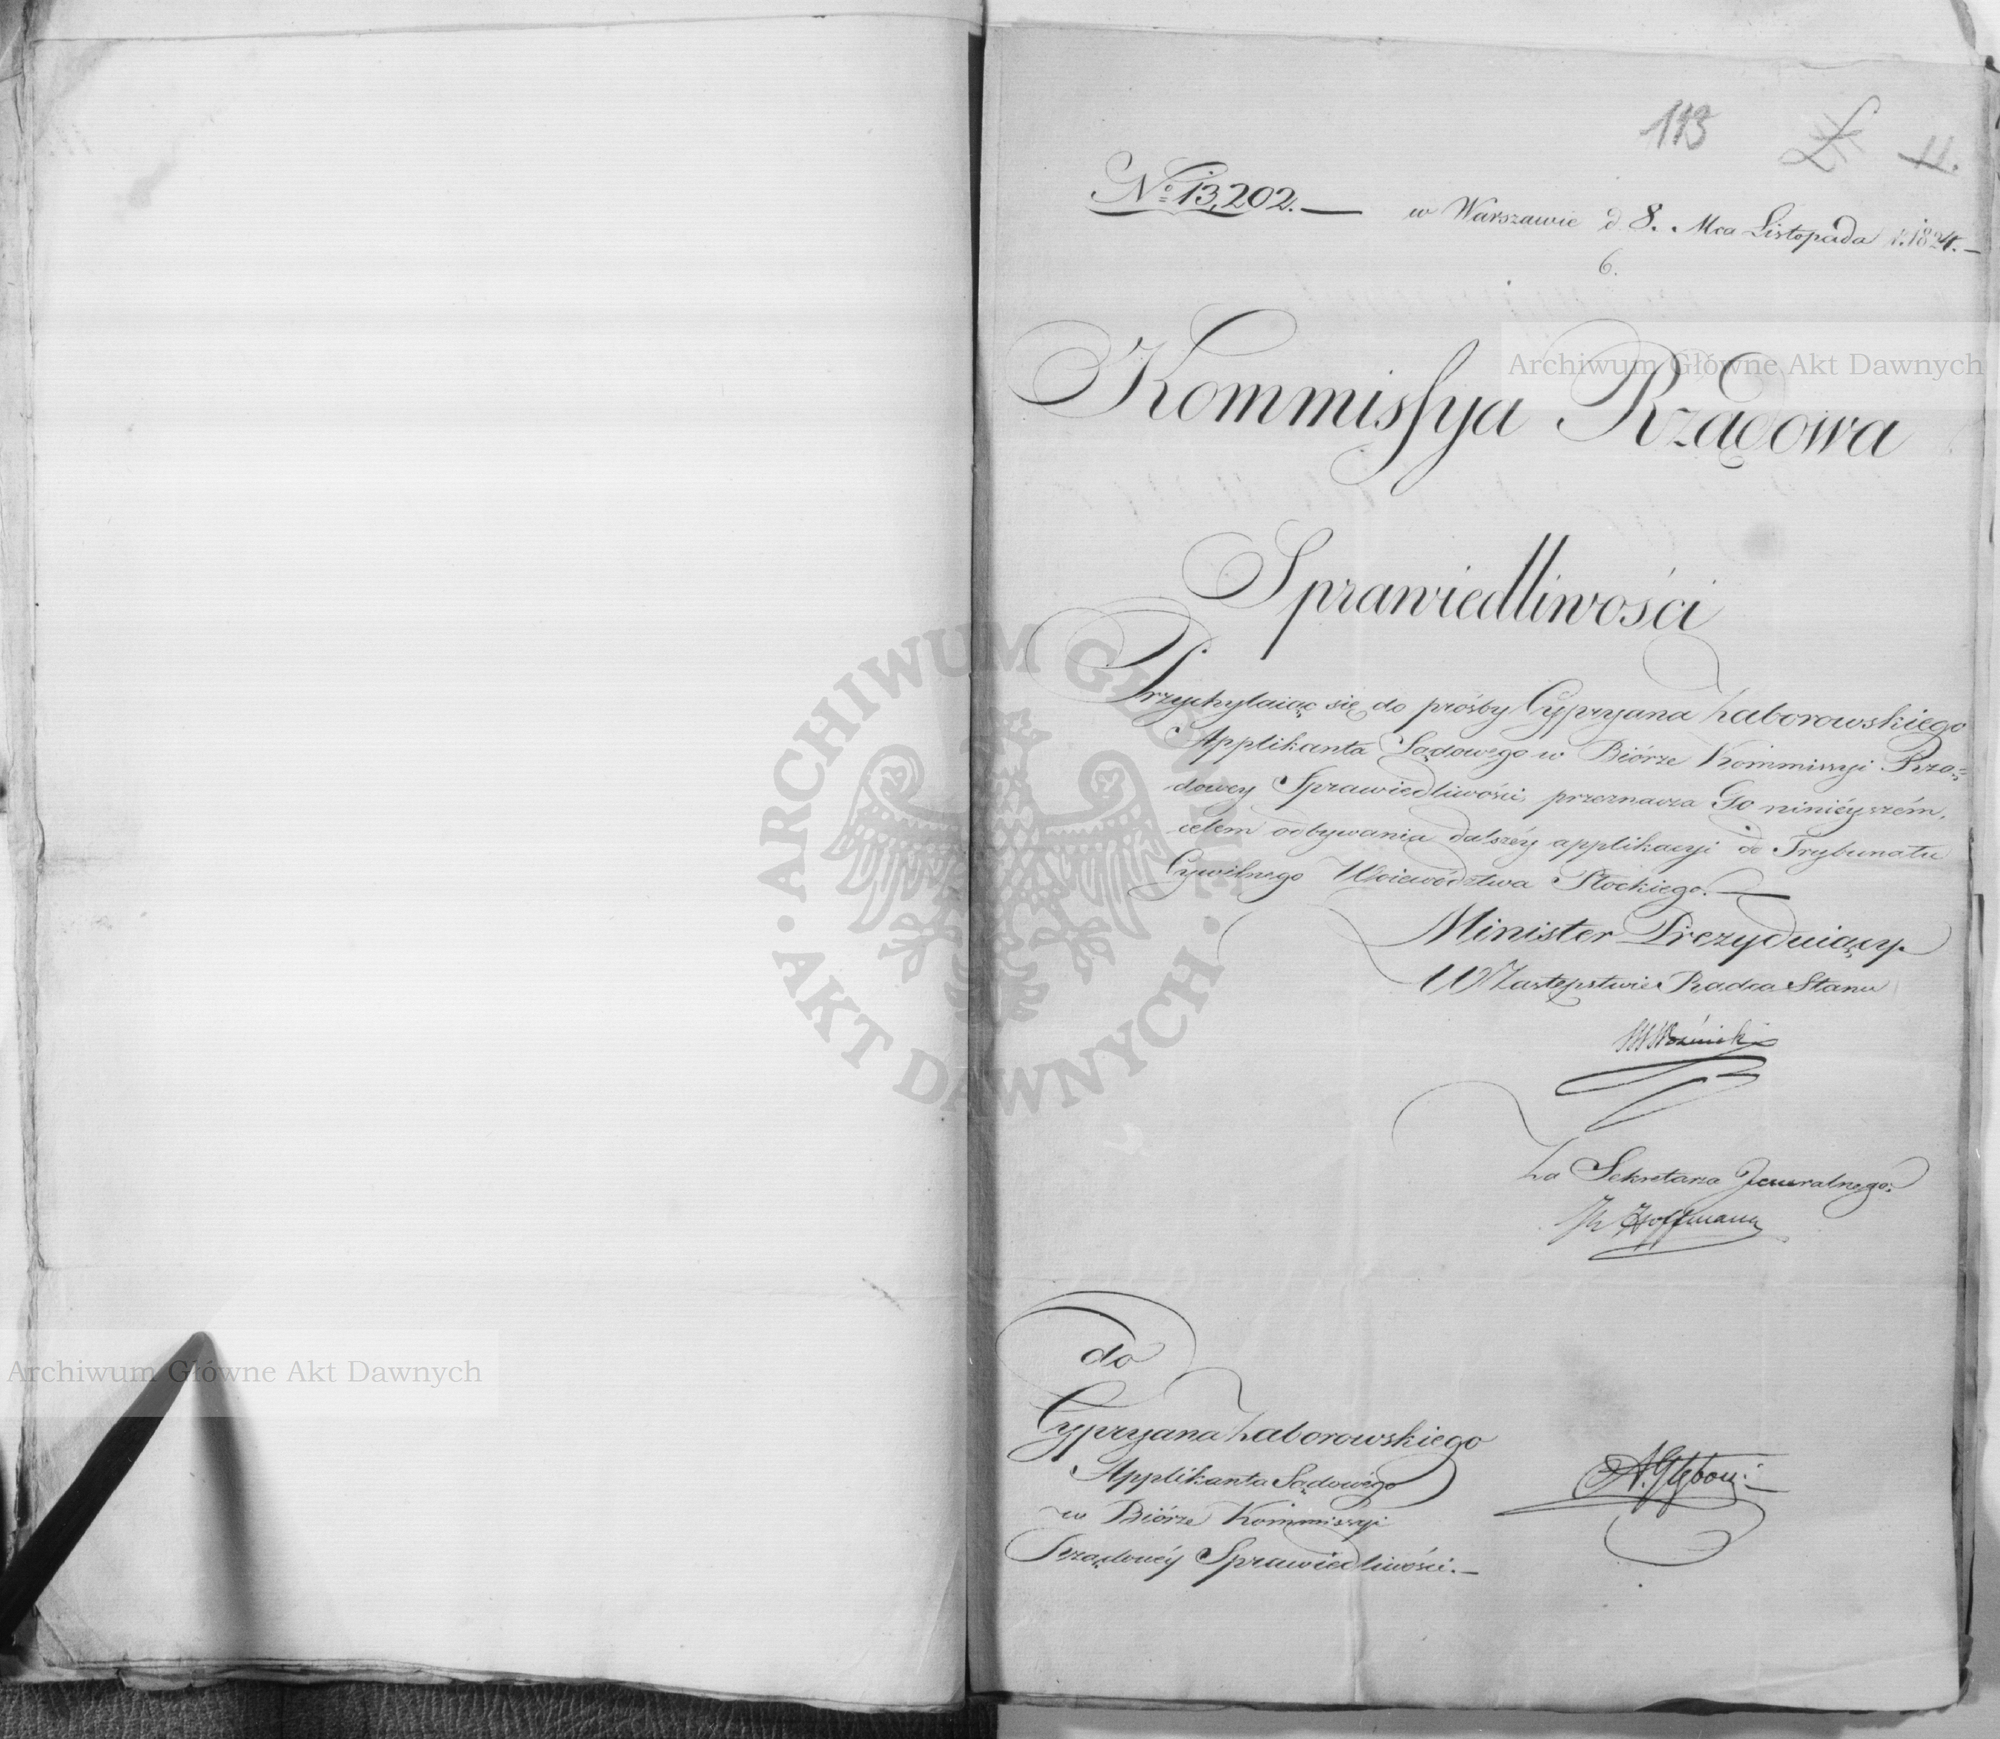 113
11.
No 13,202.—
w Warszawie d 8. Mca Listopada r. 1824.—
6.
Kommissya Rządowa
Sprawiedliwości
Przychylaiąc się do prośby Cypryana Zaborowskiego
Applikanta Sądowego w Biórze Kommissyi Rzą=
dowey Sprawiedliwości, przeznacza Go ninieyszém,
celem odbywania dalszéy applikacyi do Trybunału
Cywilnego Woiewództwa Płockiego.—
Minister Prezyduiący
W Zastępstwie Radca Stanu
M Woźnicki
Za Sekretarza Jeneralnego.
Hoffmann
do
Cypryana Zaborowskiego
Applikanta Sądowégo
w Biórze Kommissyi
Rządowéy Sprawiedliwości.—
Archiwum Główne Akt Dawnych
Archiwum Główne Akt Dawnych
ARCHIWUM GŁÓWNE · AKT DAWNYCH ·